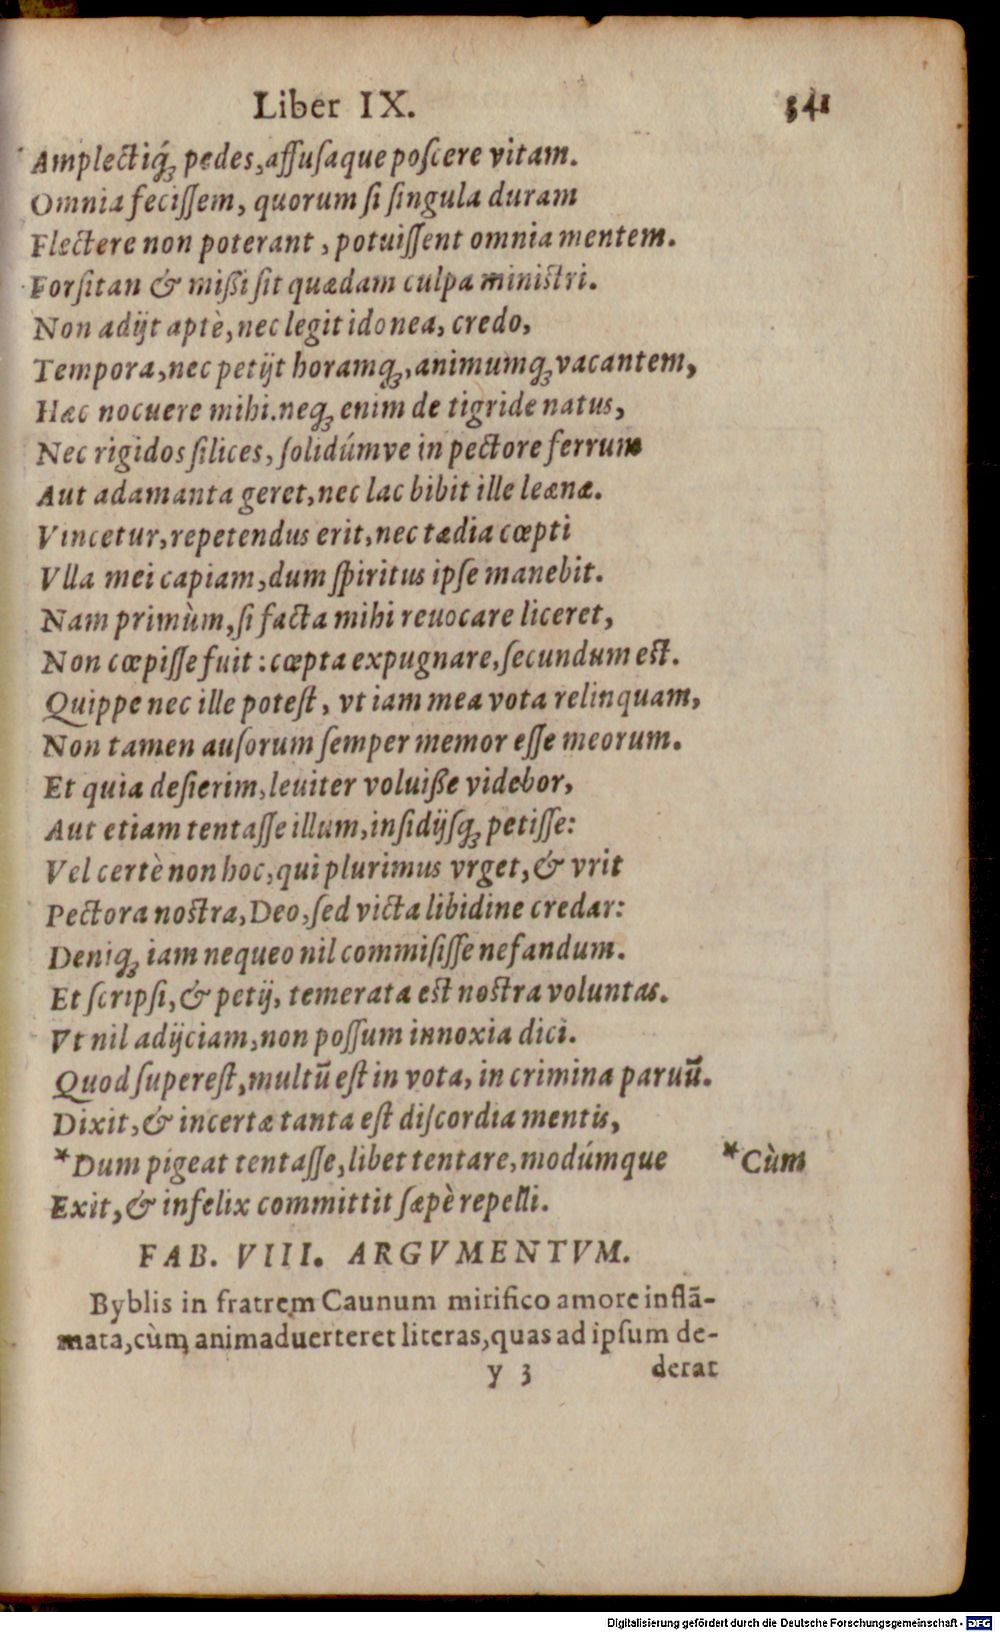 Liber IX. 341
Amplectiq́ꝫ pedes, affuſaque poſcere vitam.
Omnia feciſſem, quorum ſi ſingula duram
Flectere non poterant, potuiſſent omnia mentem.
Forſitan & miſſi ſit quædam culpa miniſtri.
Non adijt aptè, nec legit idonea, credo,
Tempora, nec petijt horamqꝫ, animumqꝫ vacantem,
Hæc nocuere mihi. neqꝫ enim de tigride natus,
Nec rigidos ſilices, ſolidúmve in pectore ferrum
Aut adamanta geret, nec lac bibit ille leænæ.
Vincetur, repetendus erit, nec tædia cœpti
Vlla mei capiam, dum ſpiritus ipſe manebit.
Nam primùm, ſi facta mihi reuocare liceret,
Non cœpiſſe fuit: cœpta expugnare, ſecundum eſt.
Quippe nec ille poteſt, vt iam mea vota relinquam,
Non tamen auſorum ſemper memor eſſe meorum.
Et quia deſierim, leuiter voluiße videbor,
Aut etiam tentaſſe illum, inſidijſqꝫ petiſſe:
Vel certè non hoc, qui plurimus vrget, & vrit
Pectora noſtra, Deo, ſed victa libidine credar:
Deniqꝫ iam nequeo nil commiſiſſe nefandum.
Et ſcripſi, & petij, temerata eſt noſtra voluntas.
Vt nil adijciam, non poſſum innoxia dici.
Quod ſupereſt, multũ eſt in vota, in crimina paruũ.
Dixit, & incertæ tanta eſt diſcordia mentis,
*Dum pigeat tentaſſe, libet tentare, modúmque *Cùm
Exit, & infelix committit ſæpè repelli.
FAB. VIII. ARGVMENTVM.
Byblis in fratrem Caunum mirifico amore inflã-
mata, cùm animaduerteret literas, quas ad ipſum de-
y 3 derat
Digitalisierung gefördert durch die Deutsche Forschungsgemeinschaft - DFG